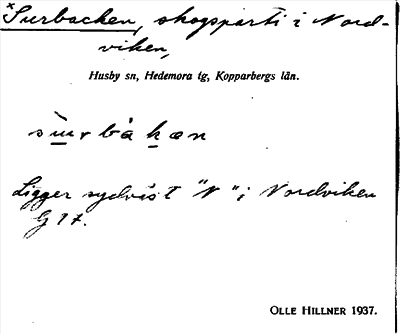 *Surbacken, skogsparti i Nord-
viken,
Husby sn, Hedemora tg, Kopparbergs län.
Ligger sydväst "N" i Nordviken
G 17.
OLLE HILLNER 1937.